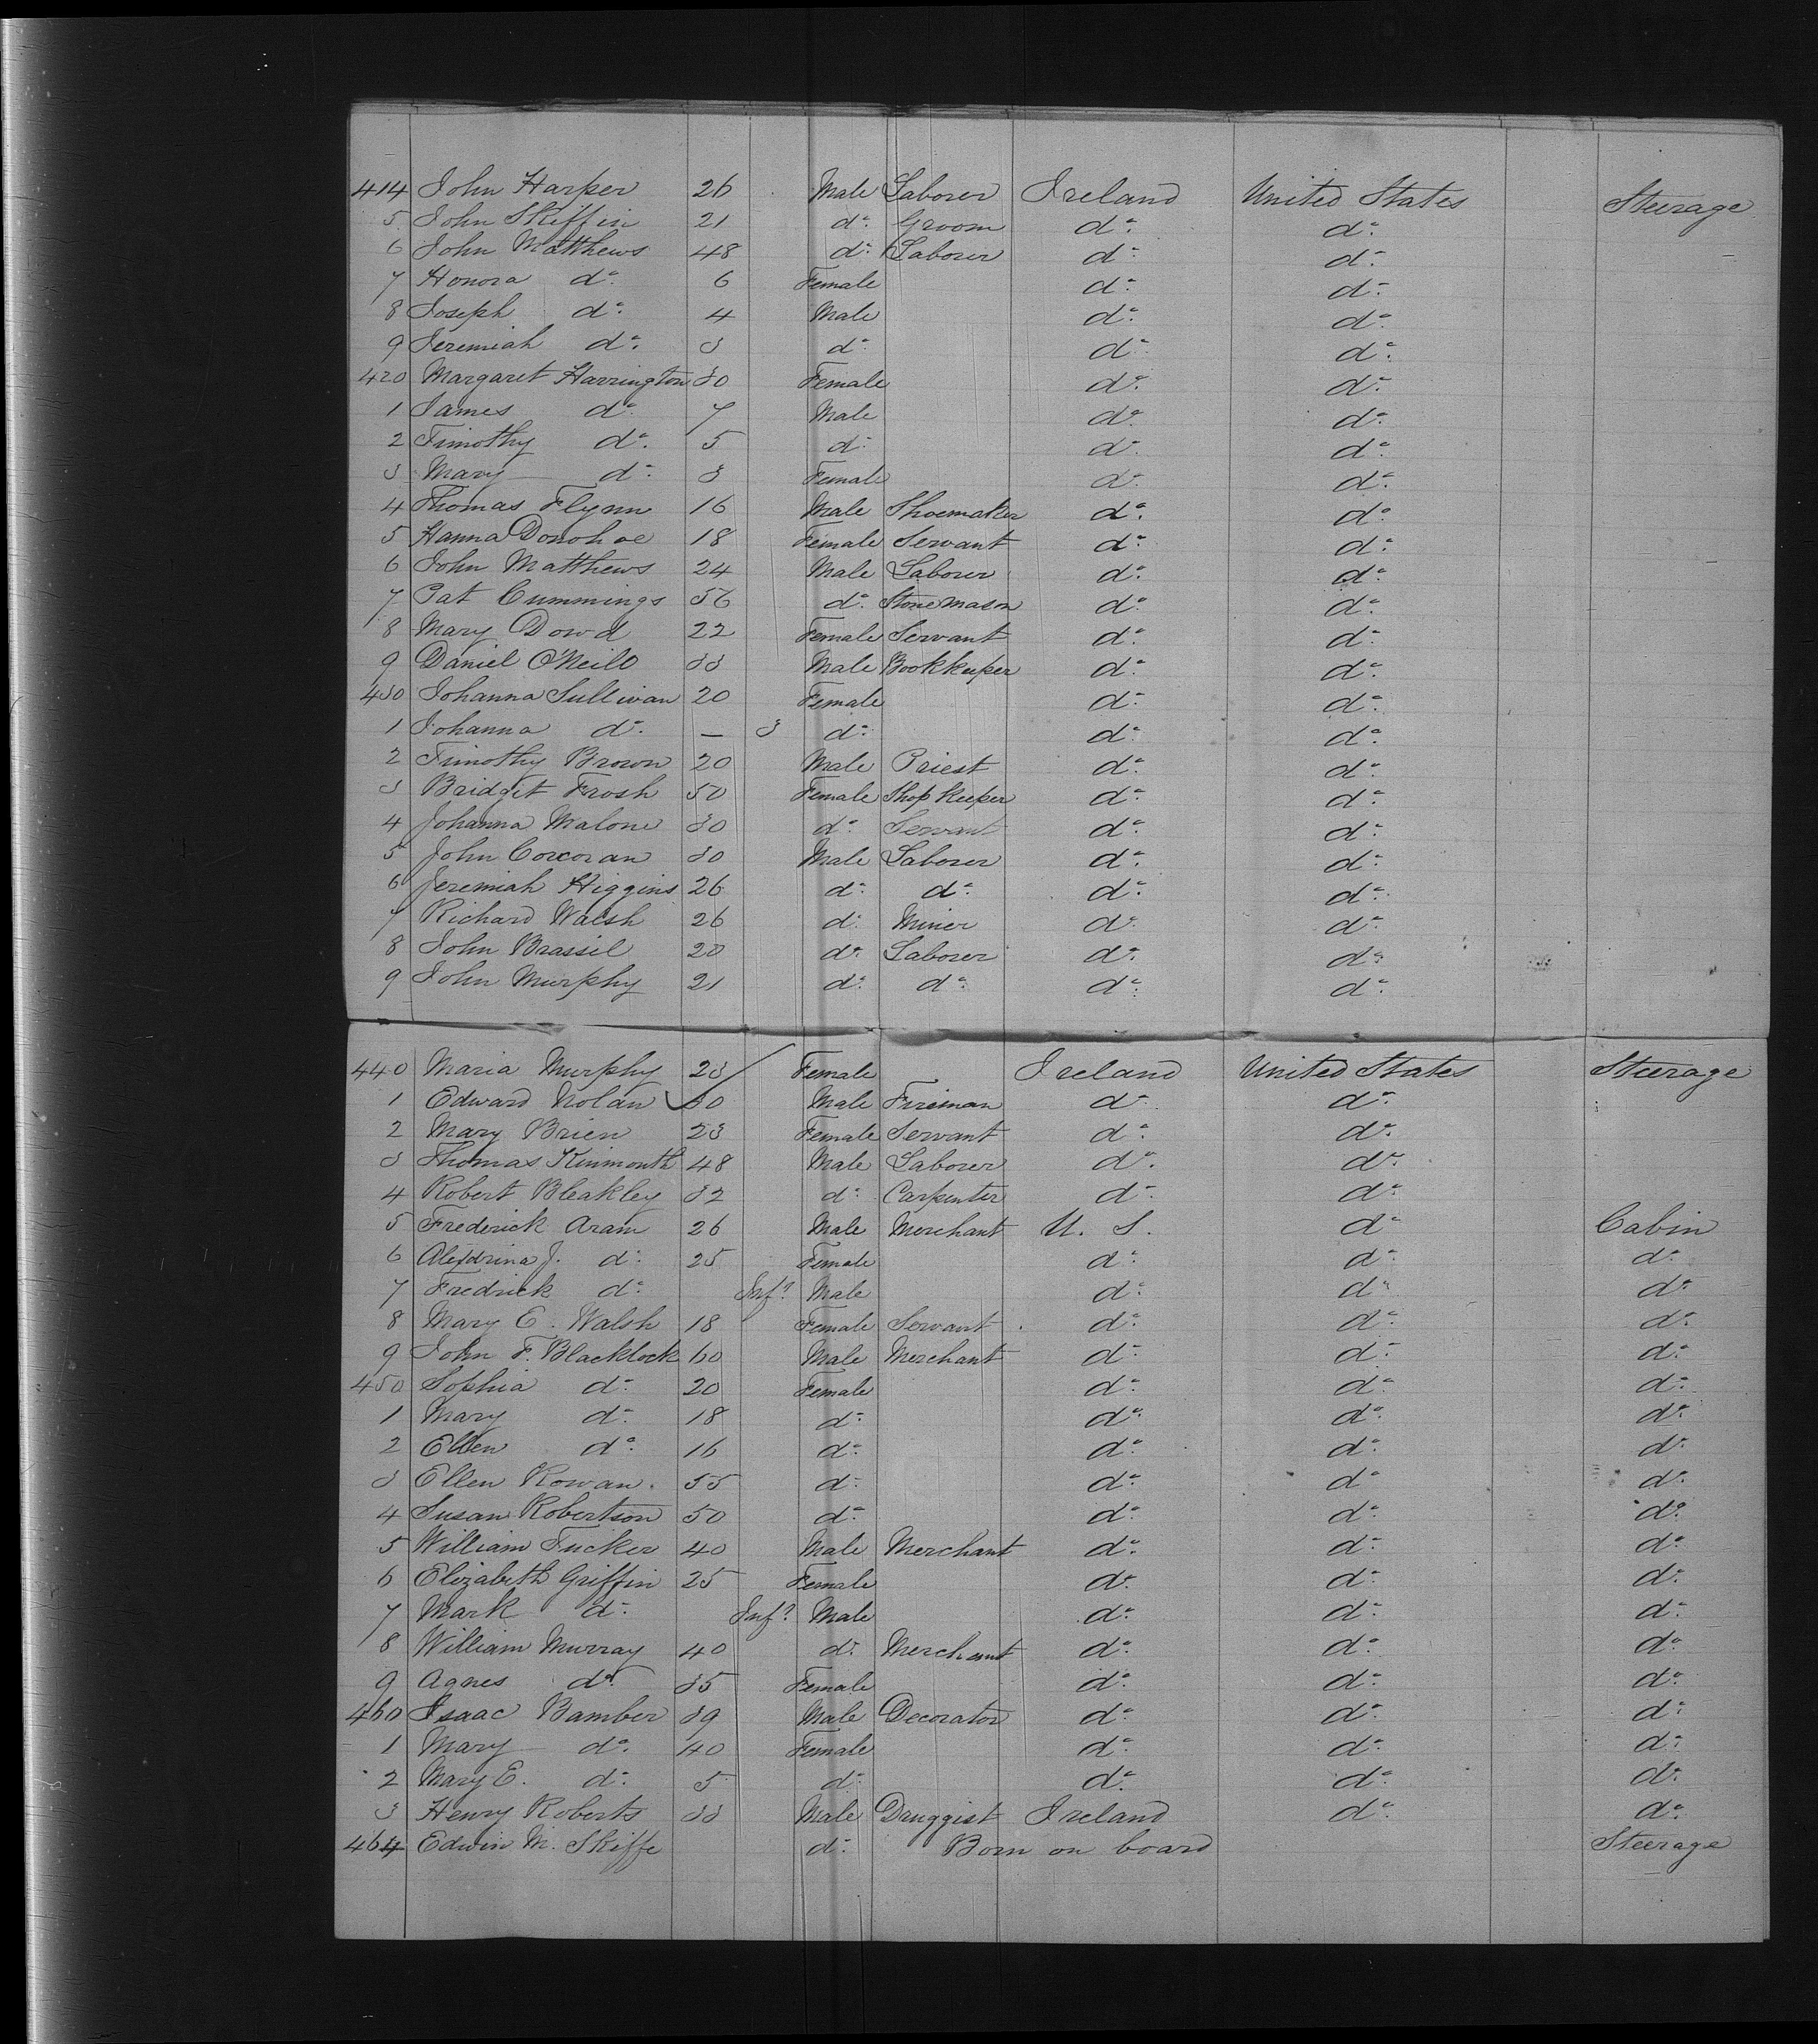 414 John Harper 26 Male Laborer Ireland United States Steerage
5 John Skiffin 21 do. Groom do. do.
6 John Matthews 48 do. Laborer do. do.
7 Honora do. 6 Female do. do.
8 Joseph do. 4 Male do. do.
9 Jeremiah do. 3 do. do. do.
420 Margaret Harrington 30 Female do. do.
1 James do. 7 Male do. do.
2 Timothy do. 5 do. do. do.
3 Mary do. 3 Female do. do.
4 Thomas Flynn 16 Male Shoemaker do. do.
5 Hanna Donohoe 18 Female Servant do. do.
6 John Matthews 24 Male Laborer do. do.
7 Pat Cummings 56 do. Stone Mason do. do.
8 Mary Dowd 22 Female Servant do. do.
9 Daniel O'Neill 33 Male Bookkeeper do. do.
430 Johanna Sullivan 20 Female do. do.
1 Johanna do. — 3 do. do. do.
2 Timothy Brown 20 Male Priest do. do.
3 Bridget Frosh 50 Female Shop Keeper do. do.
4 Johanna Malone 30 do. Servant do. do.
5 John Corcoran 30 Male Laborer do. do.
6 Jeremiah Higgins 26 do. do. do. do.
7 Richard Walsh 26 do. Miner do. do.
8 John Brassil 20 do. Laborer do. do.
9 John Murphy 21 do. do. do. do.
440 Maria Murphy 23 Female Ireland United States Steerage
1 Edward Nolan 30 Male Fireman do. do.
2 Mary Brien 23 Female Servant do. do.
3 Thomas Kinmonth 48 Male Laborer do. do.
4 Robert Bleakley 32 do. Carpenter do. do.
5 Frederick Aram 26 Male Merchant U. S. do. Cabin
6 J. do. 25 Female do. do. do.
7 Fredrick do. Inft Male do. do. do.
8 Mary E. Walsh 18 Female Servant do. do. do.
9 John F. Blacklock 60 Male Merchant do. do. do.
450 Sophia do. 20 Female do. do. do.
1 Mary do. 18 do. do. do. do.
2 Ellen do. 16 do. do. do. do.
3 Ellen Rowan 55 do. do. do. do.
4 Susan Robertson 50 do. do. do. do.
5 William Tucker 40 Male Merchant do. do. do.
6 Elizabeth Griffin 25 Female do. do. do.
7 Mark do. Inft Male do. do. do.
8 William Murray 40 do. Merchant do. do. do.
9 Agnes do. 35 Female do. do. do.
460 Isaac Bamber 39 Male Decorator do. do. do.
1 Mary do. 40 Female do. do. do.
2 Mary E. do. 5 do. do. do. do.
3 Henry Roberts 33 Male Druggist Ireland do. do.
464 Edwin M. Skiffe do. Born on board Steerage